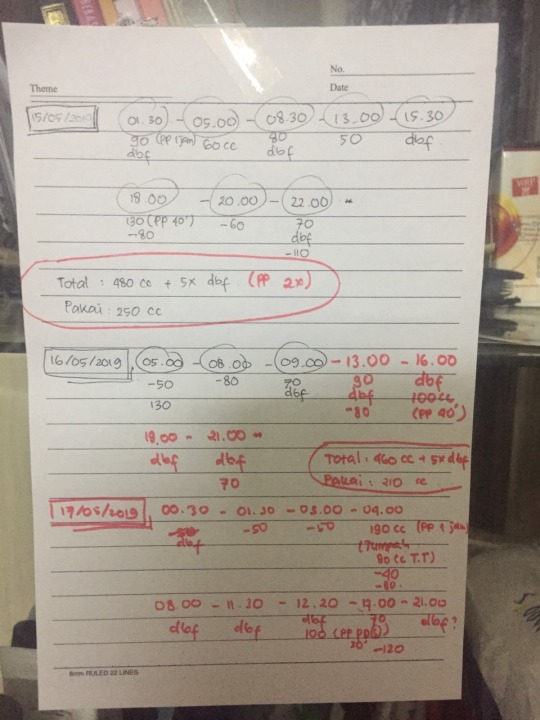 No.
Theme
Date
15/05/2019 01.30 - 05.00 - 08.30 - 13.00 - 15.30
90 (PP 1jam) 60 cc 80 50 dbf
dbf dbf
18.00 - 20.00 - 22.00
130 (PP 40') -60 70
-80 dbf
-110
Total : 480 cc + 5x dbf. (PP 2x)
Pakai : 250 cc
16/05/2019 05.00 - 08.00 - 09.00 - 13.00 - 16.00
-50 -80 70 90 dbf
130 dbf dbf 100cc
-80 (PP 40')
18.00 - 21.00
dbf dbf
70
Total : 460 cc + 5x dbf
Pakai : 210 cc
17/05/2019 00.30 - 01.30 - 03.00 - 04.00
dbf -50 -50 180 cc (PP 1 jam)
(Tumpah
80 cc T.T)
-40
-80
08.00 - 11.30 - 12.20 - 17.00 - 21.00
dbf dbf dbf 70 dbf?
100 (PP
30' -120
8mm RULED 22 LINES